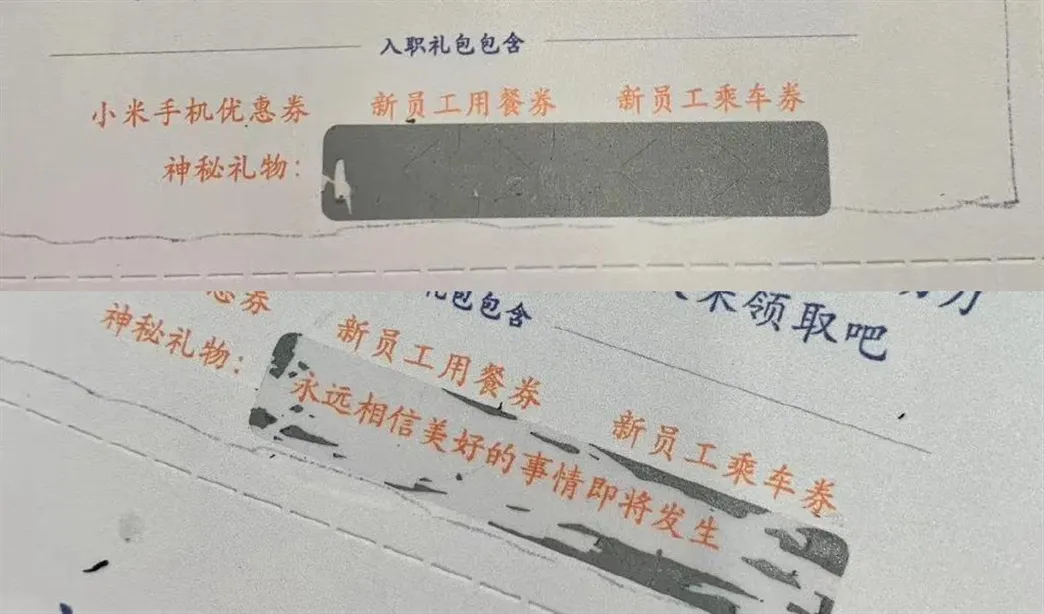 入职礼包包含
小米手机优惠券 新员工用餐券 新员工乘车券
神秘礼物:
来领取吧
券 礼包包含
神秘礼物: 新员工用餐券 新员工乘车券
永远相信美好的事情即将发生